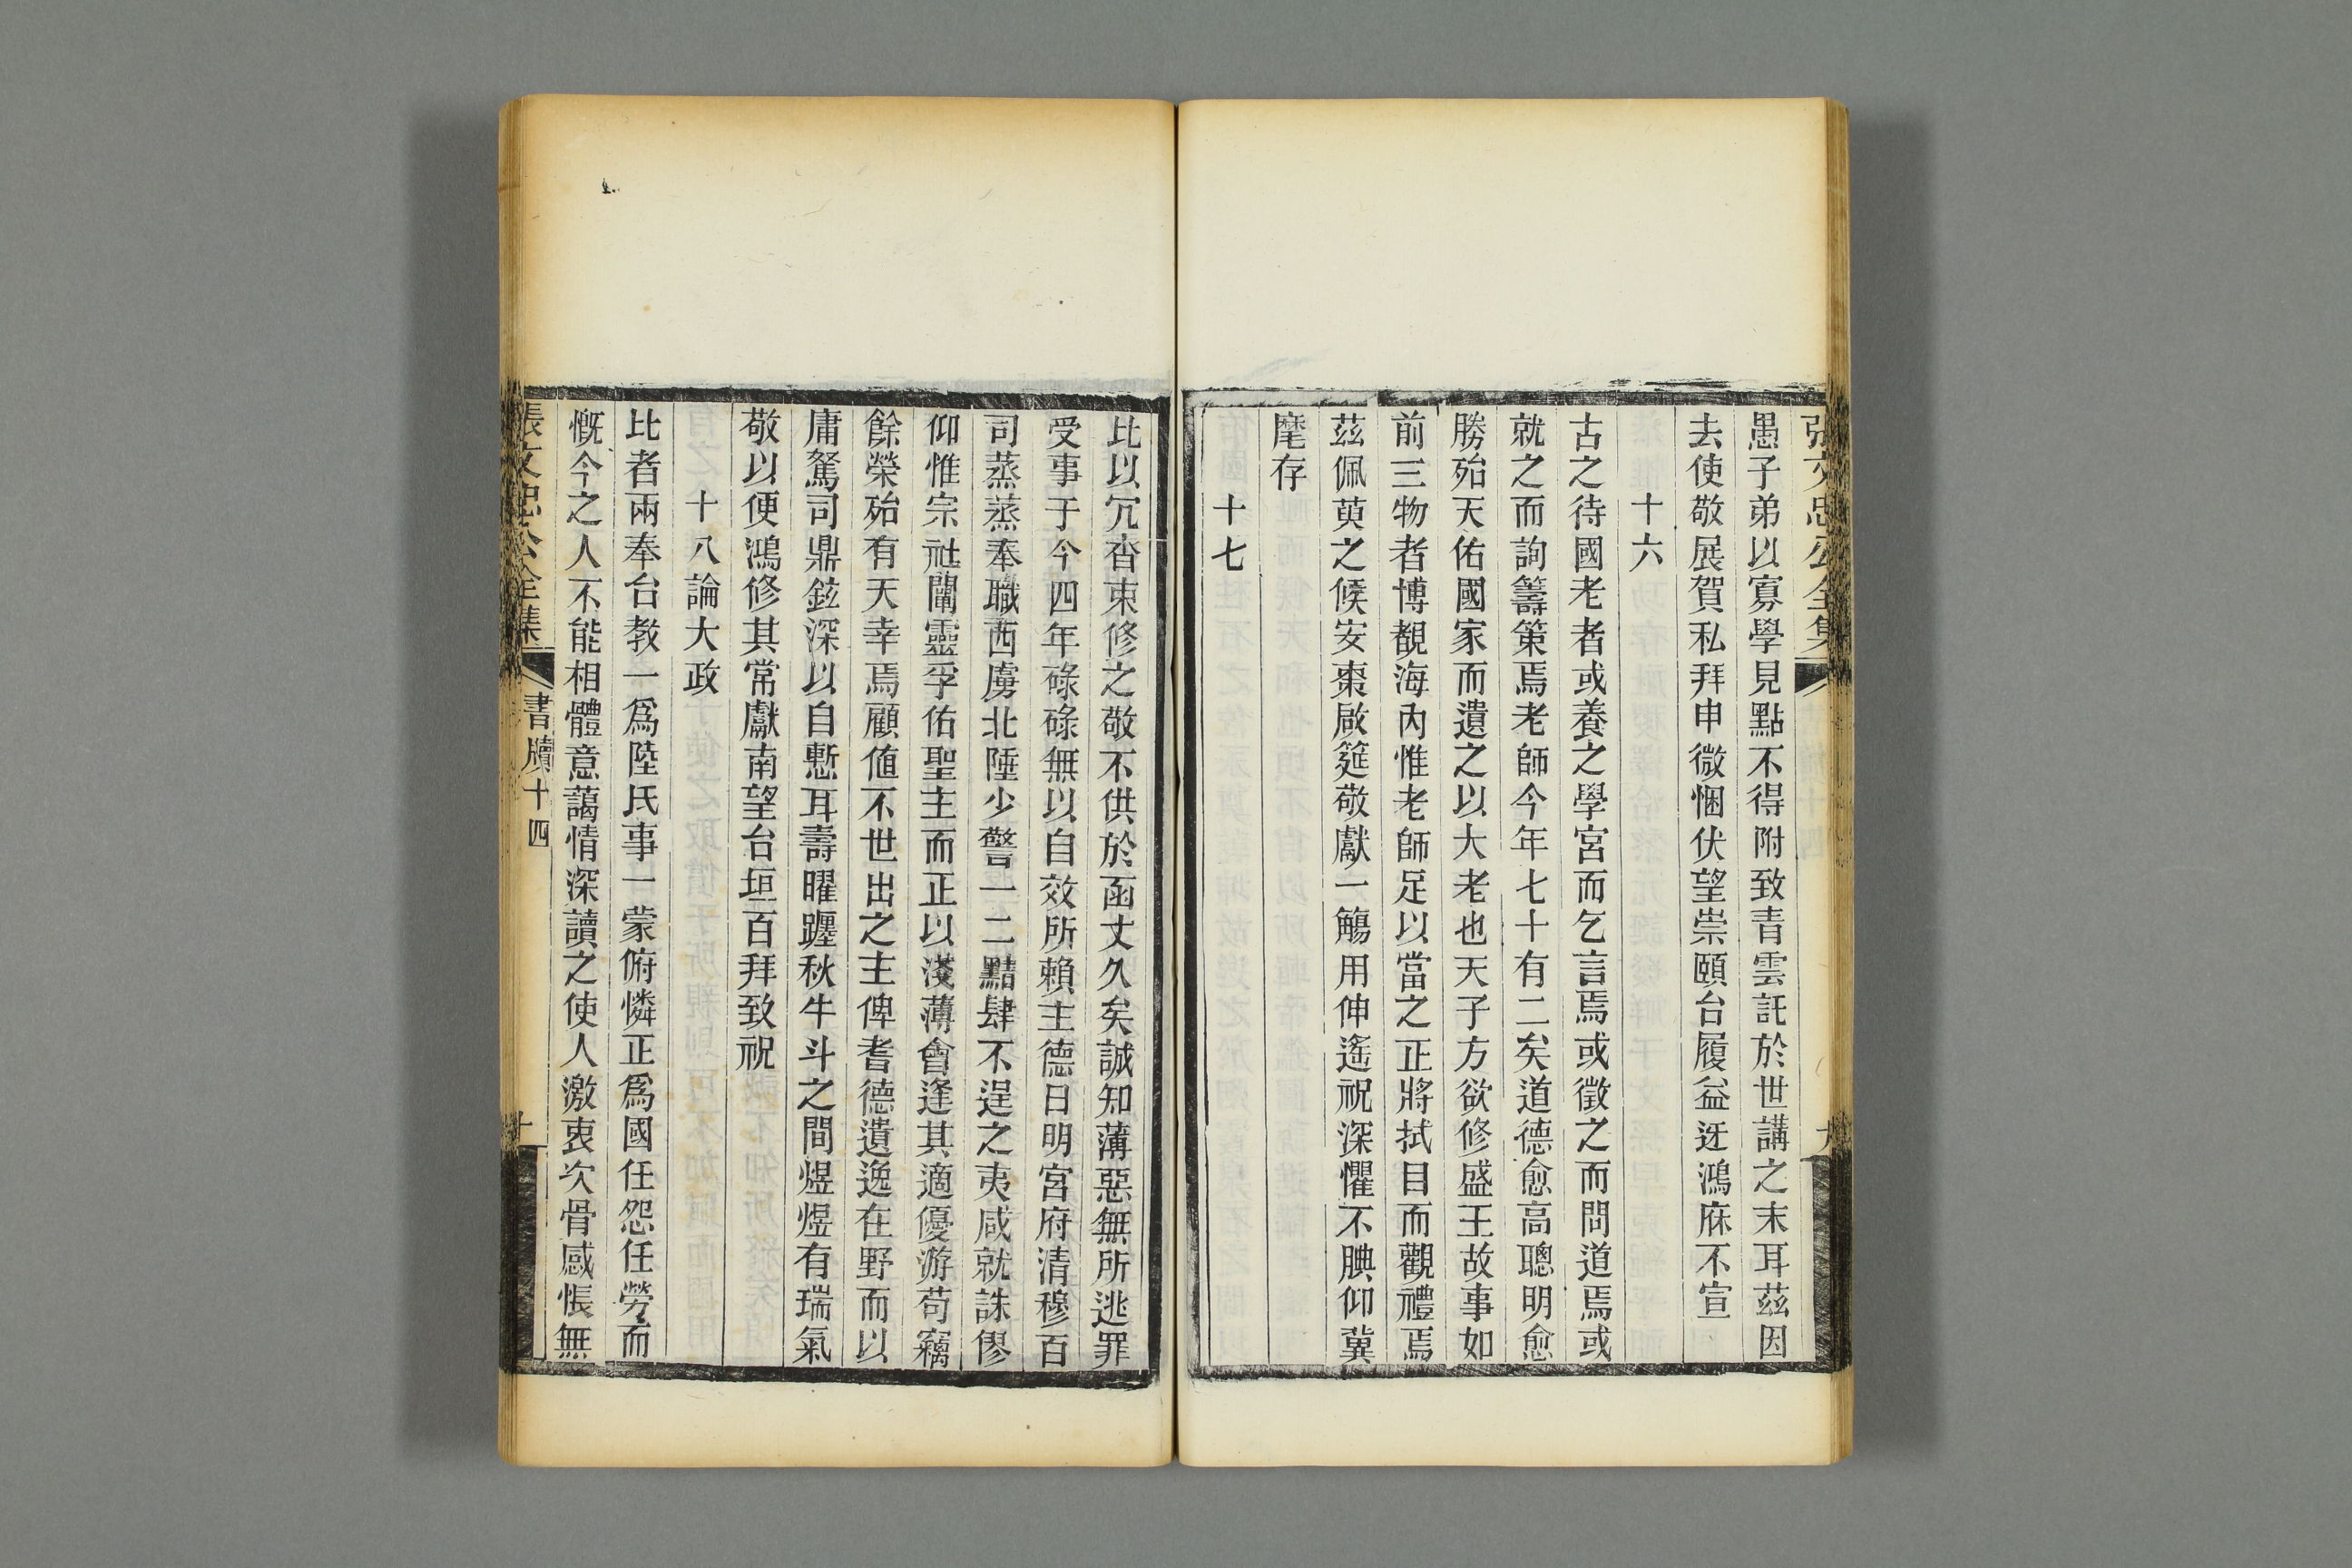 張文忠公全集
九
愚子弟以寡學見點不得附致青雲託於世講之末耳茲因
去使敬展賀私拜申微悃伏望崇頤台履益迓鴻庥不宣
十六
古之待國老者或養之學宮而乞言焉或徵之而問道焉或
就之而詢籌策焉老師今年七十有二矣道德愈高聰明愈
勝殆天佑國家而遺之以大老也天子方欲修盛王故事如
前三物者博覩海內惟老師足以當之正將拭目而觀禮焉
茲佩萸之候安棗啟筵敬獻一觴用伸遙祝深懼不腆仰冀
麾存
十七
比以冗沓束修之敬不供於函丈久矣誠知薄惡無所逃罪
受事于今四年碌碌無以自效所賴主德日明宮府清穆百
司蒸蒸奉職西虜北陲少警一二黠肆不逞之夷咸就誅僇
仰惟宗社闡靈孚佑聖主而正以淺薄會逢其適優游苟竊
餘榮殆有天幸焉顧値不世出之主俾耆德遺逸在野而以
庸駑司鼎鉉深以自慙耳壽曜躔秋牛斗之間煜煜有瑞氣
敬以便鴻修其常獻南望台垣百拜致祝
十八論大政
比者兩奉台教一爲陸氏事一蒙俯憐正爲國任怨任勞而
慨今之人不能相體意藹情深讀之使人激衷次骨感悵無
張文忠公全集
書牘十四
十